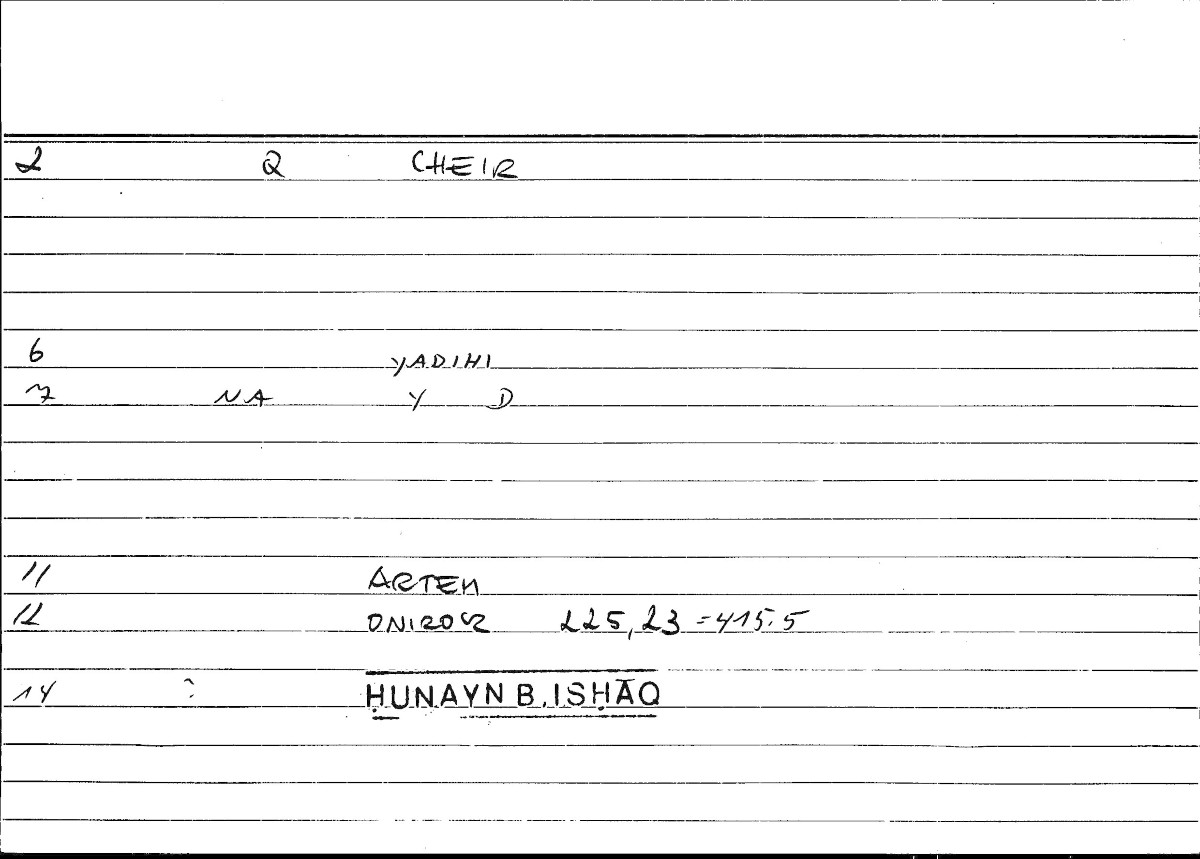 2 Q CHEIR
6 YADIHI
7 NA Y D
11 ARTEM
12 ONIROCR 225,23 = 415.5
14 : ḤUNAYN B. ISḤĀQ